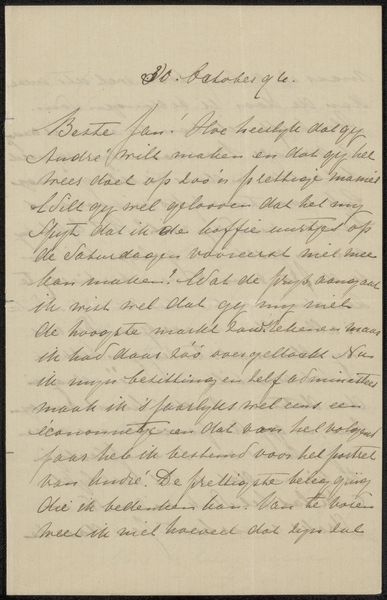 30. October 96.
Beste Jan! Hoe heerlyk dat gy
André wilt maken en dat gy het
wees doet op zoo'n prettige manier
Wilt gy wel gelooven dat het my
spyt dat ik de koffie uurtjes op
de Saturdagen vooreerst niet mee
kan maken! Wat de prys aangaat
ik wist wel dat gy my niet
de hoogste markt zoud rekenen maar
ik had daar zóó over getobt Nu
ik myn bezitting en zelf administreer
maak ik 's jaarlyks wel eens een
economietje en dat van het volgend
jaar heb ik bestemd voor het portret
van André. De prettigste belegging
die ik bedenken kan. Van te voren
weet ik niet hoeveel dat zyn zal